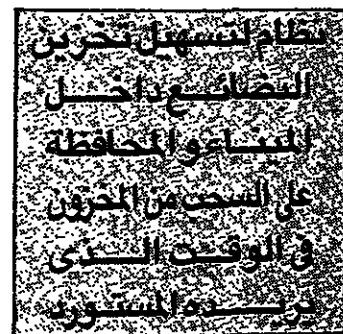 نظام لتسهيل تخزين
البضائع داخل
الميناء والمحافظة
على السحب من المخزون
فى الوقت الذى
يريده المستورد